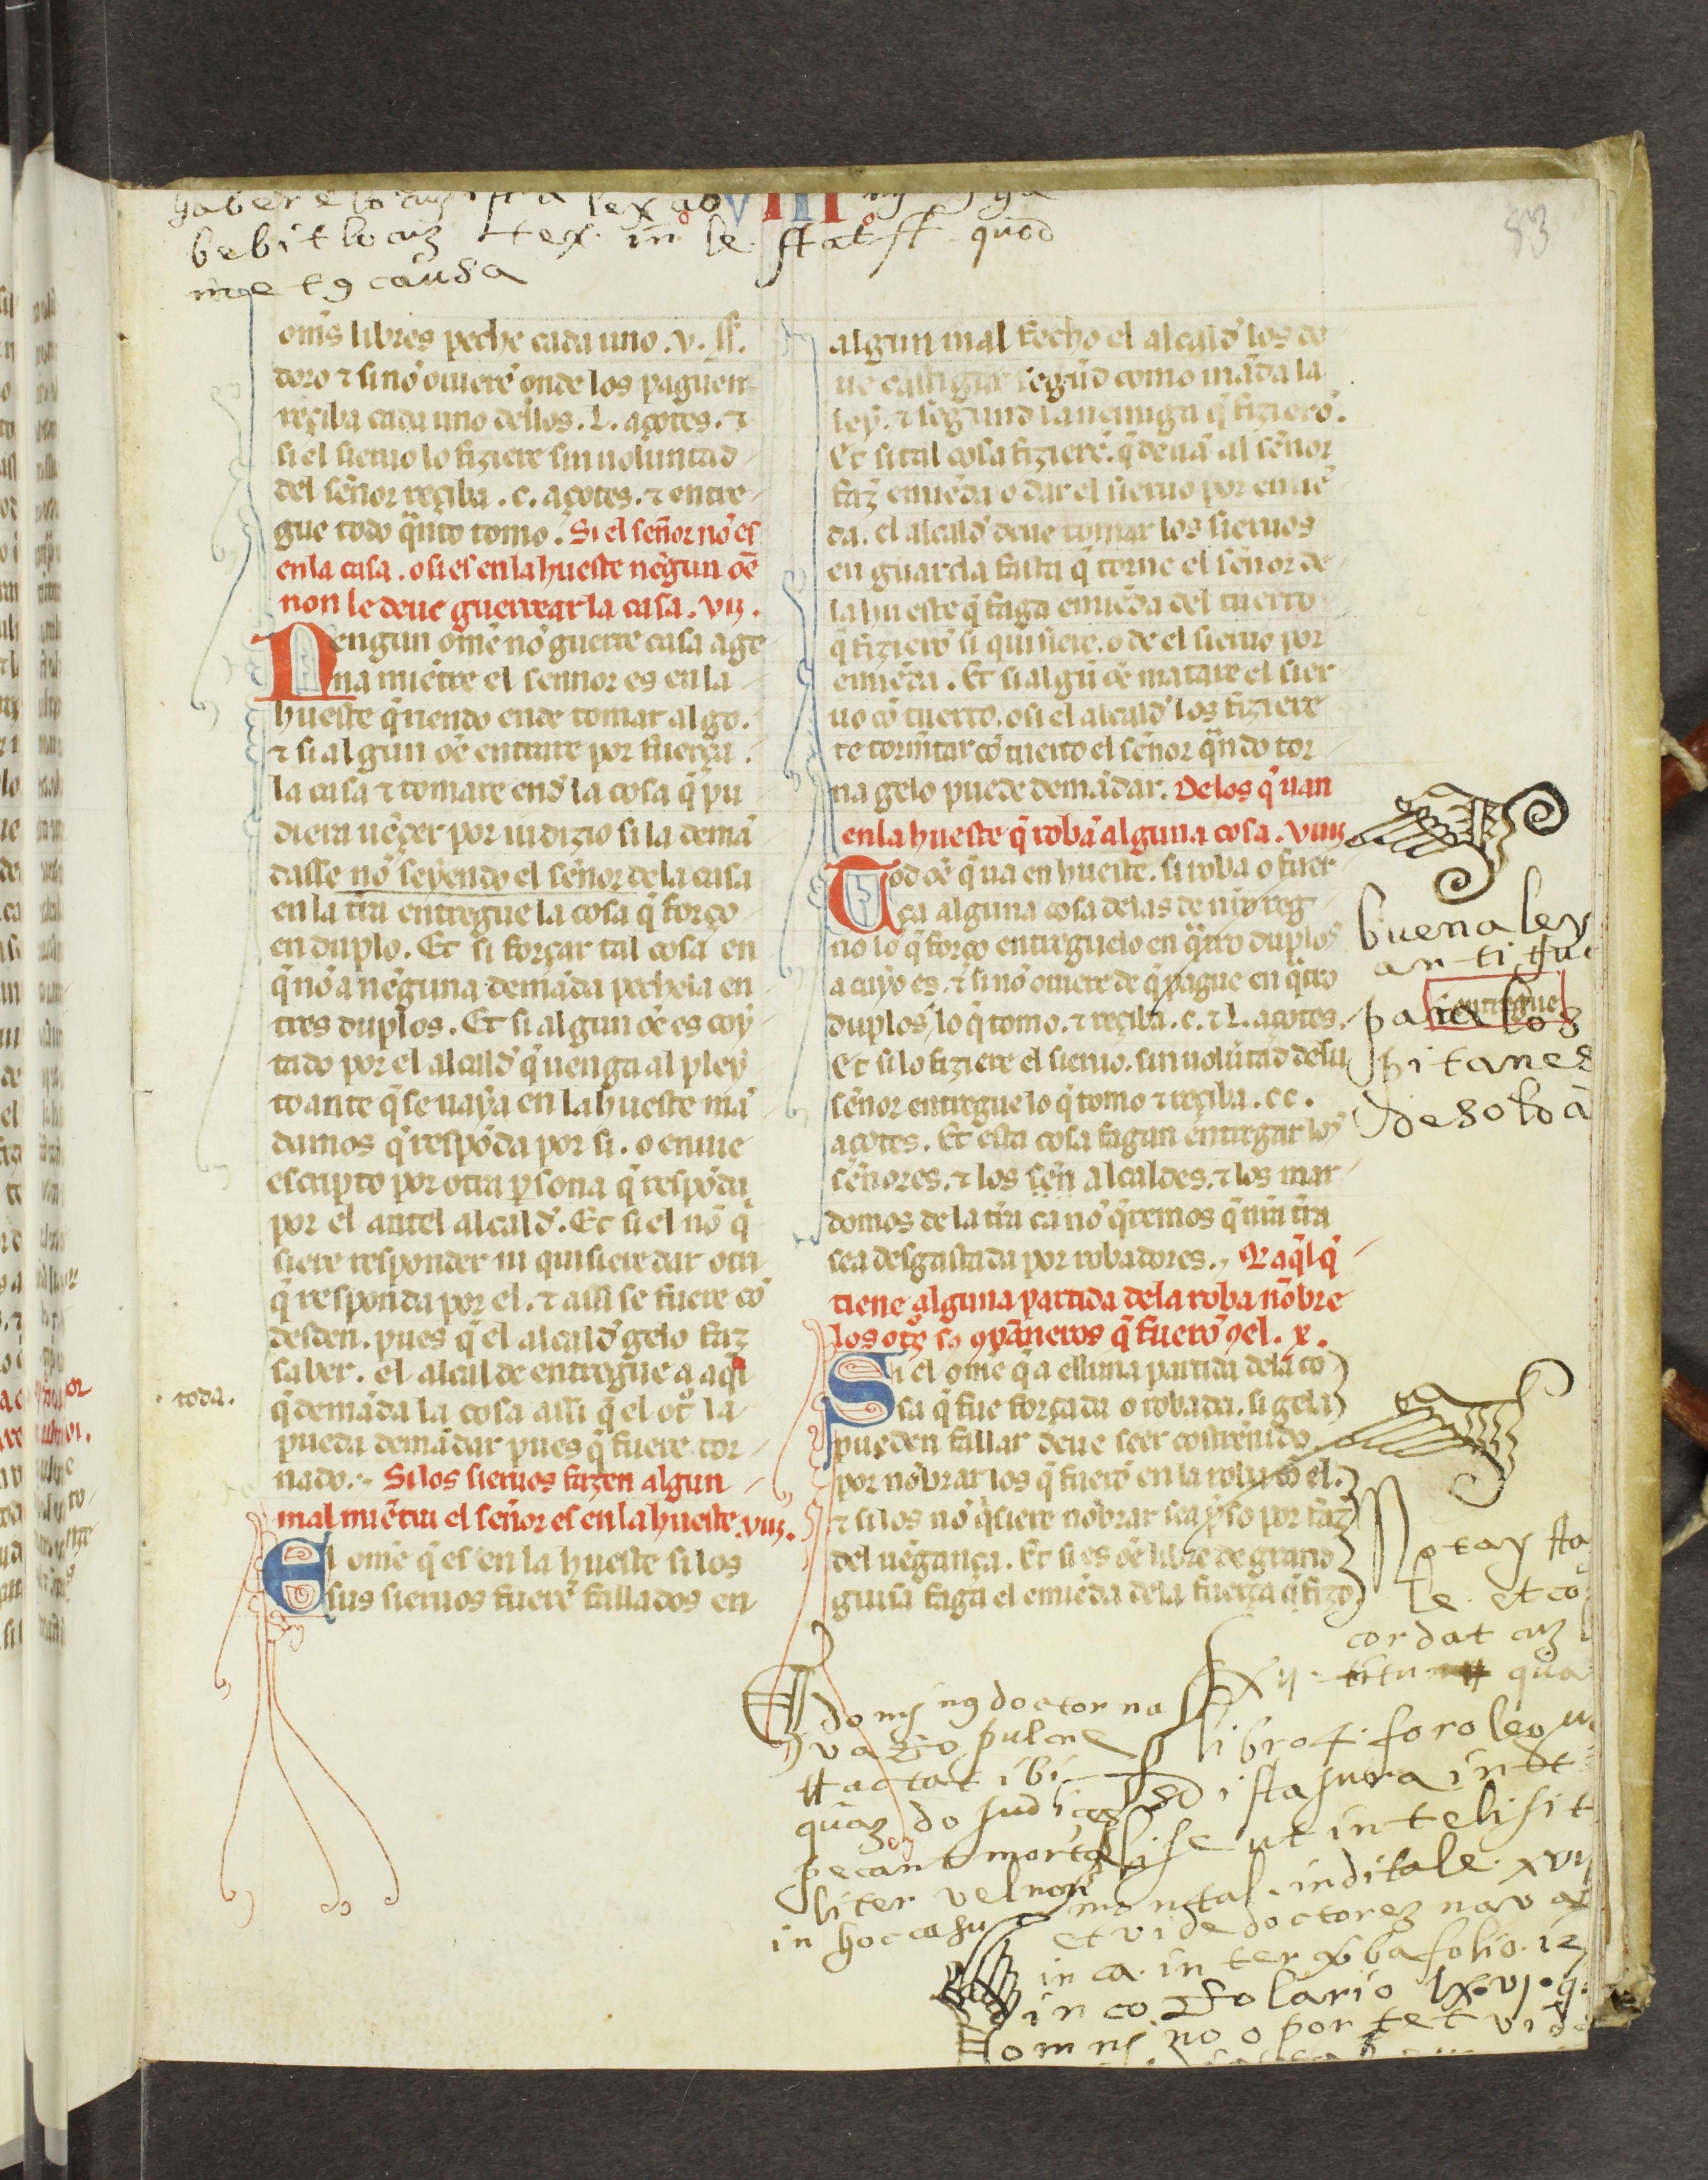 VIII
83
bebit locuz tex. in le. stat st. quod
met9 causa
om̃s libres peche cada uno .v. ss̃.
doro ⁊ si nõ ouierẽ onde los paguen
reçiba cada uno dellos .L. açotes. ⁊
si el sieruo lo fiziere sin uoluntad
del señor reçiba .c. açotes. ⁊ entre
gue todo qᵃnto tomo. Si el señor nõ es
en la casa . o si es en la hueste negun oẽ
non le deue guerrear la casa. vij.
Nengun omẽ nõ guerre casa age
na miẽtre el sennor es en la
hueste q̃riendo ende tomar algo.
⁊ si algun oẽ entrare por fuerça
la casa ⁊ tomare end̃ la cosa q̃ pu
diera uẽçer por iudizio si la demã
dasse nõ seyendo el señor de la casa
en la tr̃ra entregue la cosa q̃ forço
en duplo. Et si forçar tal cosa en
q̃ nõ a neguna demãda pechela en
tres duplos. Et si algun oẽ es coy
tado por el alcald̃ q̃ uenga al pley
to ante q̃ se uaya en la hueste mã
damos q̃ respõda por si. o enuie
escripto por otra ꝑsona q̃ respõda
por el antel alcald̃. Et si el nõ q̃
siere responder ni quisiere dar otri
q̃ responda por el. ⁊ assi se fuere cõ
desden. pues q̃ el alcald̃ gelo faz
saber. el alcalde entregue a aq̃l
toda.
q̃ demãda la cosa assi q̃ el otº la
pueda demãdar pues q̃ fuere tor
nado. Si los sieruos fazen algun
mal miẽtra el señor es en la hueste. viij.
El omẽ q̃ es en la hueste si los
sus sieruos fuerẽ fallados en
algun mal fecho el alcald̃ los de
ue castigar segũd como mãda la
ley. ⁊ segund la nemiga q̃ fizierõ.
Et si tal cosa fizierẽ. q̃ deuã al señor
faz̃ emiẽda o dar el sieruo por emiẽ
da. el alcald̃ deue tomar los sieruos
en guarda fasta q̃ torne el señor de
la hueste q̃ faga emiẽda del tuerto
q̃ fizierõ si quisiere. o de el sieruo por
emiẽda. Et si algũ oẽ matare el sier
uo cõ tuerto. o si el alcald̃ los fiziere
tormẽtar cõ tuerto el señor qᵃndo tor
na gelo puede demãdar. Delos q̃ uan
en la hueste q̃ robã alguna cosa. viiij
Tod oẽ q̃ ua en hueste. si roba o fuer
ça alguna cosa delas de nr̃o reg
no lo q̃ forço entreguelo en qᵃtro duplos
a cuyo es. ⁊ si nõ ouiere de q̃ pague en qᵃtro
duplos lo q̃ tomo. ⁊ reçiba .c. ⁊ L. açotes.
entregue
Et si lo fiziere el sieruo. sin uolũtad de su
señor entregue lo q̃ tomo ⁊ reçiba .cc.
açotes. Et esta cosa fagan entregar los
señores. ⁊ los señ alcaldes. ⁊ los mar
domos de la tr̃ra ca nõ q̃remos q̃ nr̃a tr̃ra
sea desgastada por robadores. Q̃ aq̃l q̃
tiene alguna partida dela roba nõbre
los otºs sꝯ ꝯpãneros q̃ fuerõ ꝯel. x.
Si el omẽ q̃ a essima partida dela co
sa q̃ fue forçada o robada. si gela
pueden fallar deue seer costrẽnido
por nõbrar los q̃ fuerõ en la roba cõ el.
⁊ si los nõ q̃siere nõbrar sea p̃so por faz̃
del uẽgança. Et si es oẽ libre de grand
guisa faga el emiẽda dela fuerça q̃ fizo
buena ley
para los
pitanes
de solda
Nota y sta
le. et co
cordat cuz
xij. titu qua
libro 4. foro leg
sed ista jura int
lise ut intelisit
mental. inditale. xvij
et vide doctorez nav
in ca. inter verba folio. 12
in corolario lxvj.
omnj no oportet vide
doctor na
varro pulcre
tractat ibi
quaz do judices
pecant morta
liter vel non
in hoc casu